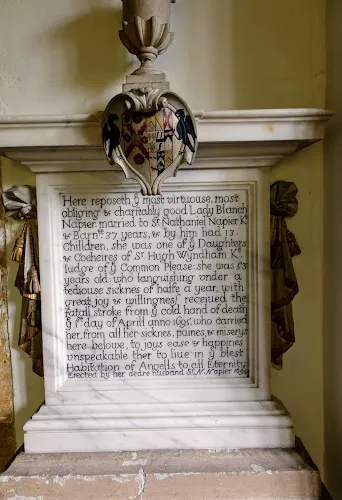 Here reposeth yᵉ most virtuouse, most
obliging & charitably good Lady Blanch
Napier, married to Sʳ Nathaniel Napier Kᵗ
& Barnᵗ 37 years, & by him had 13
Chilldren, she was one of yᵉ Daughters
& Coeheires of Sʳ Hugh Wyndham Kᵗ
ludge of yᵉ Common Please: she was 53
years old who languishing under a
tediouse sicknes of halfe a year, with
great joy & willingnesˢ received the
fatall stroke from yᵉ cold hand of death
yᵉ day of April anno 1695, who carried
her, from all her sicknes, paines, & miserys
here belowe, to joys ease & happines
unspeakable ther to liue in yᵉ blest
Habitation of Angells to all Eternity
Erected by her deare husband Sʳ N. Napier